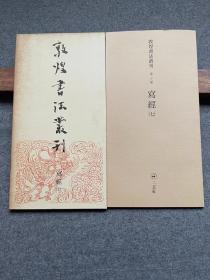 敦煌書法叢刊
寫經
敦煌書法叢刊
寫經
(七)
二玄社